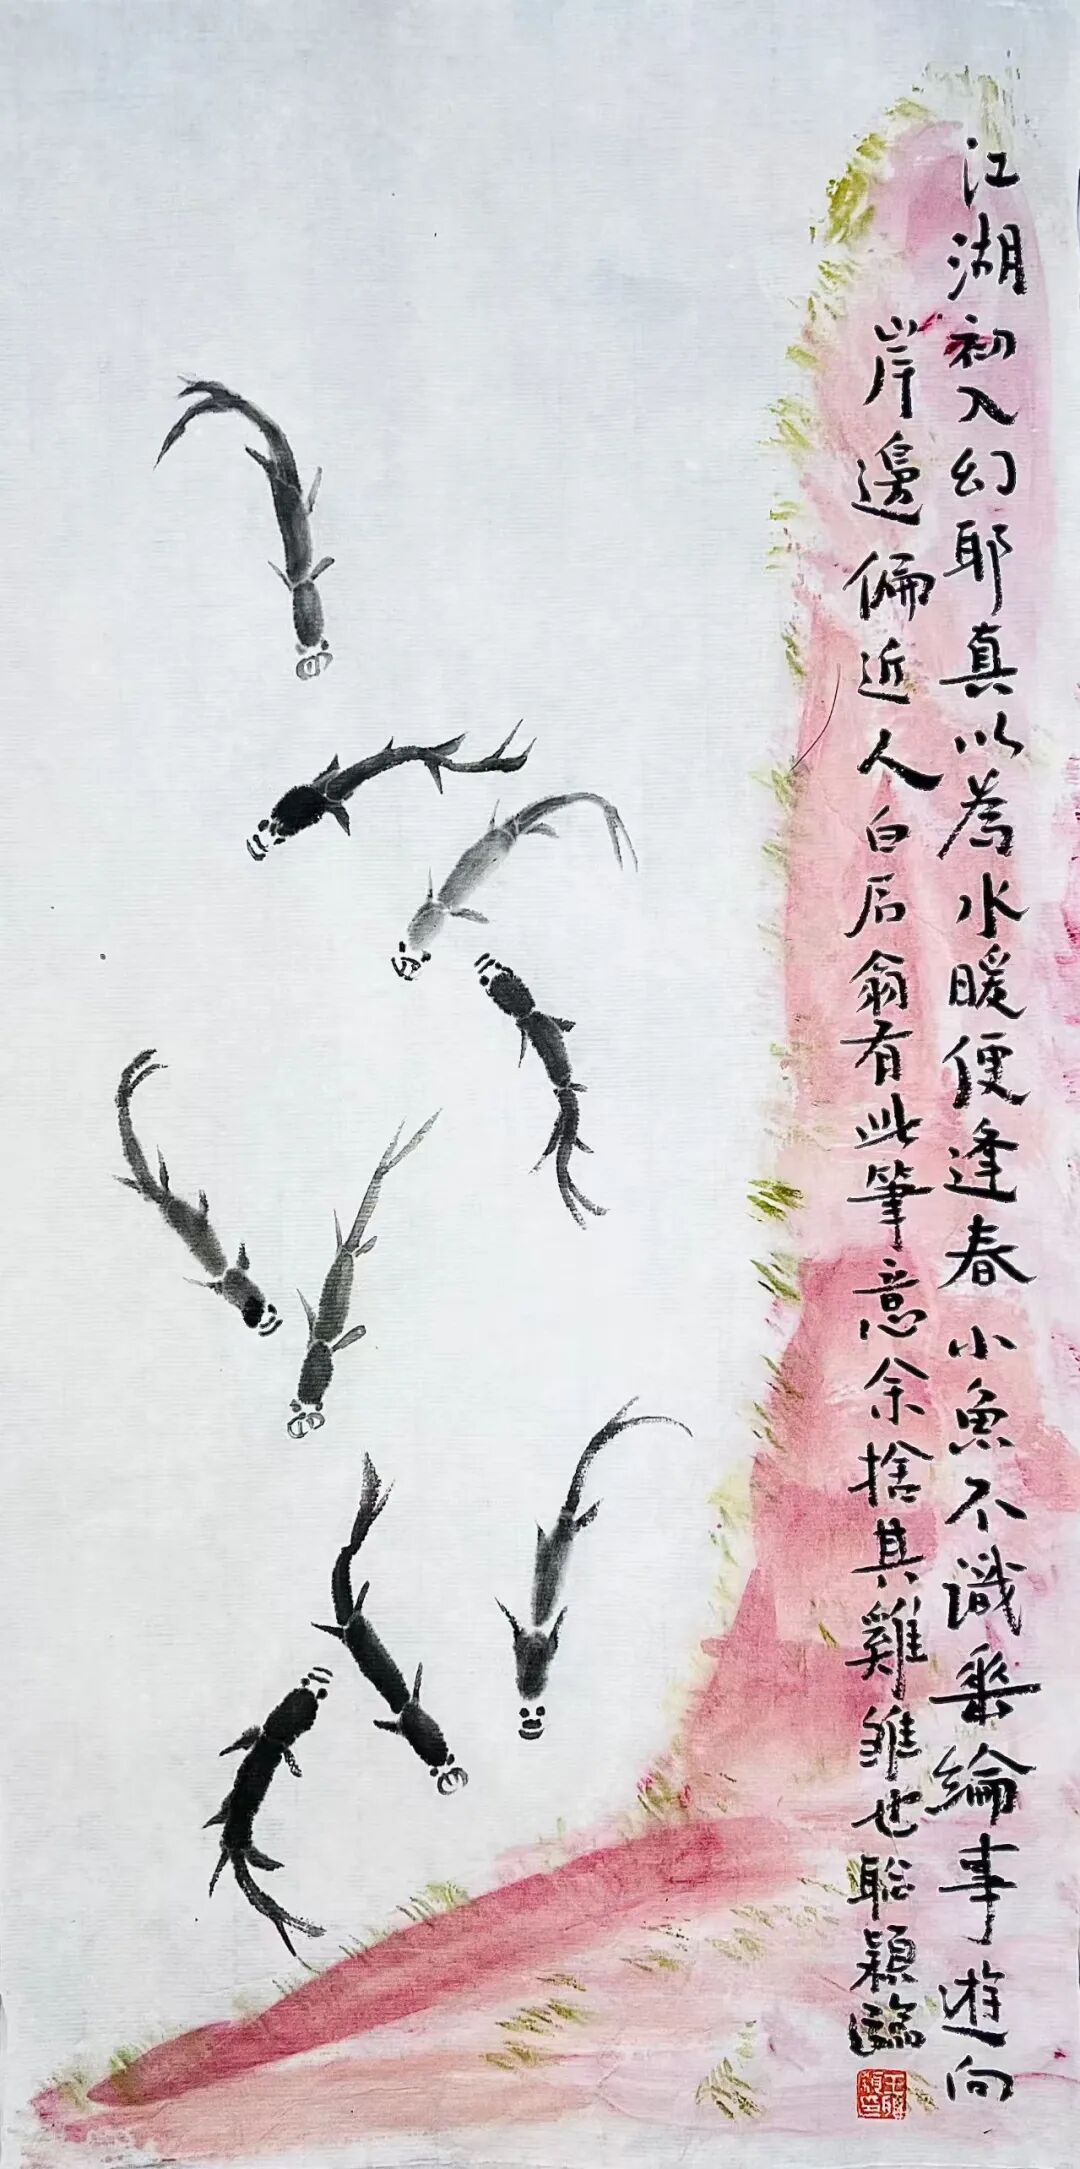 江湖初入幻耶真以為水暖便逢春小魚不識垂綸事遊向
岸邊偏近人白石翁有此筆意余捨其雞雛也聪颖臨